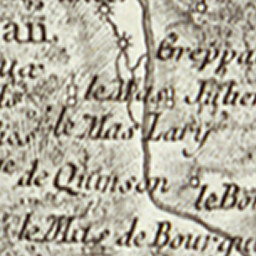 an.
Greppa
aux
le Mas Julien
ls
le Mas Lary
de Quinson
le Bo
le Mas de Bourqu